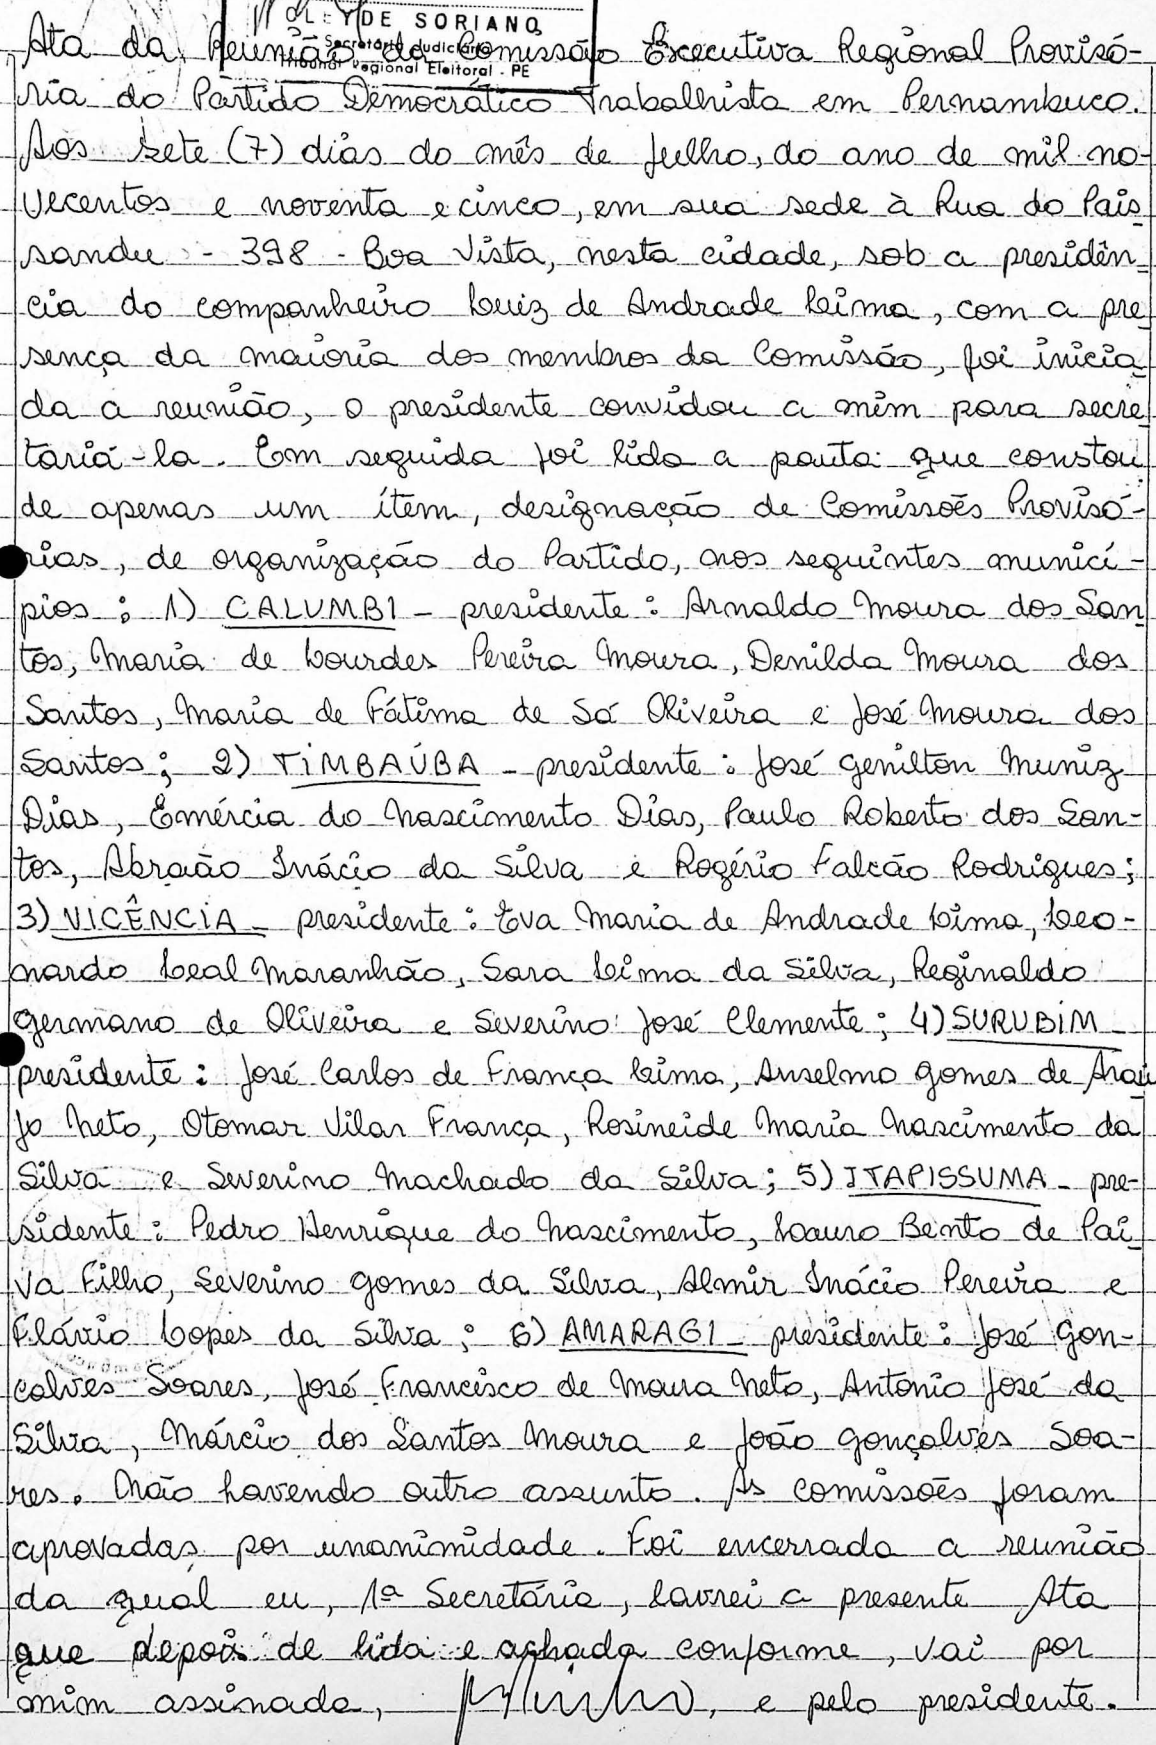 CLEYDE SORIANO
Secretária Judiciária
Tribunal Regional Eleitoral - PE
Ata da Reunião da Comissão Executiva Regional Provisó-
ria do Partido Democrático Trabalhista em Pernambuco.
Aos sete (7) dias do mês de Julho, do ano de mil no-
vecentos e noventa e cinco, em sua sede à Rua do Pais
sandu - 398 - Boa Vista, nesta cidade, sob a presidên_
cia do companheiro Luiz de Andrade Lima, com a pre
sença da maioria dos membros da Comissão, foi inicia_
da a reunião, o presidente convidou a mim para secre
tariá-la. Em seguida foi lida a pauta que constou
de apenas um ítem, designação de Comissões Provisó-
rias, de organização do Partido, nos seguintes municí-
pios: 1) CALUMBI - presidente: Arnaldo Moura dos San_
tos, Maria de Lourdes Pereira Moura, Denilda Moura dos
Santos, Maria de Fátima de Sá Oliveira e José Moura dos
Santos; 2) TIMBAÚBA - presidente: José Genilton Muniz
Dias, Emércia do Nascimento Dias, Paulo Roberto dos San-
tos, Abraão Inácio da Silva e Rogério Falcão Rodrigues;
3) VICÊNCIA - presidente: Eva Maria de Andrade Lima, Leo-
nardo Leal Maranhão, Sara Lima da Silva, Reginaldo
Germano de Oliveira e Severino José Clemente; 4) SURUBIM -
presidente: José Carlos de França Lima, Anselmo Gomes de Araú
jo Neto, Otomar Vilar França, Rosineide Maria Nascimento da
Silva e Severino Machado da Silva; 5) ITAPISSUMA - pre-
sidente: Pedro Henrique do Nascimento, Lauro Bento de Pai_
va Filho, Severino Gomes da Silva, Almir Inácio Pereira e
Flávio Lopes da Silva; 6) AMARAGI - presidente: José Gon-
çalves Soares, José Francisco de Moura Neto, Antonio José da
Silva, Márcio dos Santos Moura e João Gonçalves Soa-
res. Não havendo outro assunto. As comissões foram
aprovadas por unanimidade. Foi encerrada a reunião
da qual eu, 1ª Secretária, lavrei a presente Ata
que depois de lida e achada conforme, vai por
mim assinada, , e pelo presidente.